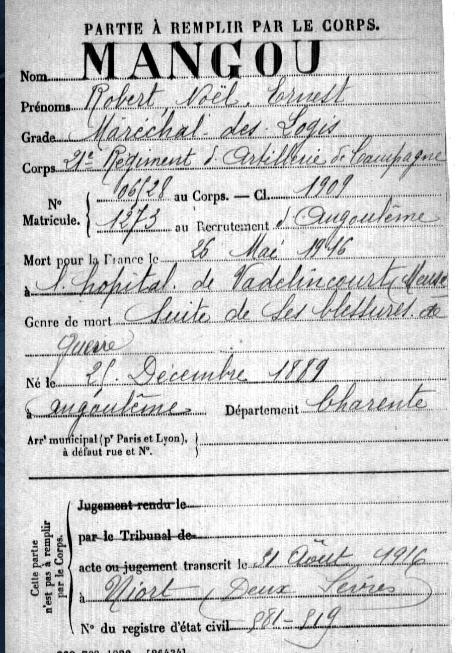 PARTIE À REMPLIR PAR LE CORPS.
Nom MANGOU
Prénoms Robert, Noël, Ernest
Grade Maréchal des Logis
Corps 21e Régiment d'Artillerie de Campagne
No Matricule. { 06728 au Corps. — Cl. 1909
1273 au Recrutement d'Angoulême
Mort pour la France le 26 Mai 1916
à l'hopital de Vadelincourt (Meuse
Genre de mort Suite de ses blessures de
guerre
Né le 25 Décembre 1889
à Angoulême Département Charente
Arrt municipal (pr Paris et Lyon), à défaut rue et No.
Cette partie n'est pas à remplir par le Corps.
Jugement rendu le
par le Tribunal de
acte ou jugement transcrit le 31 Août 1916
à Niort (Deux Sèvres)
No du registre d'état civil 881-819